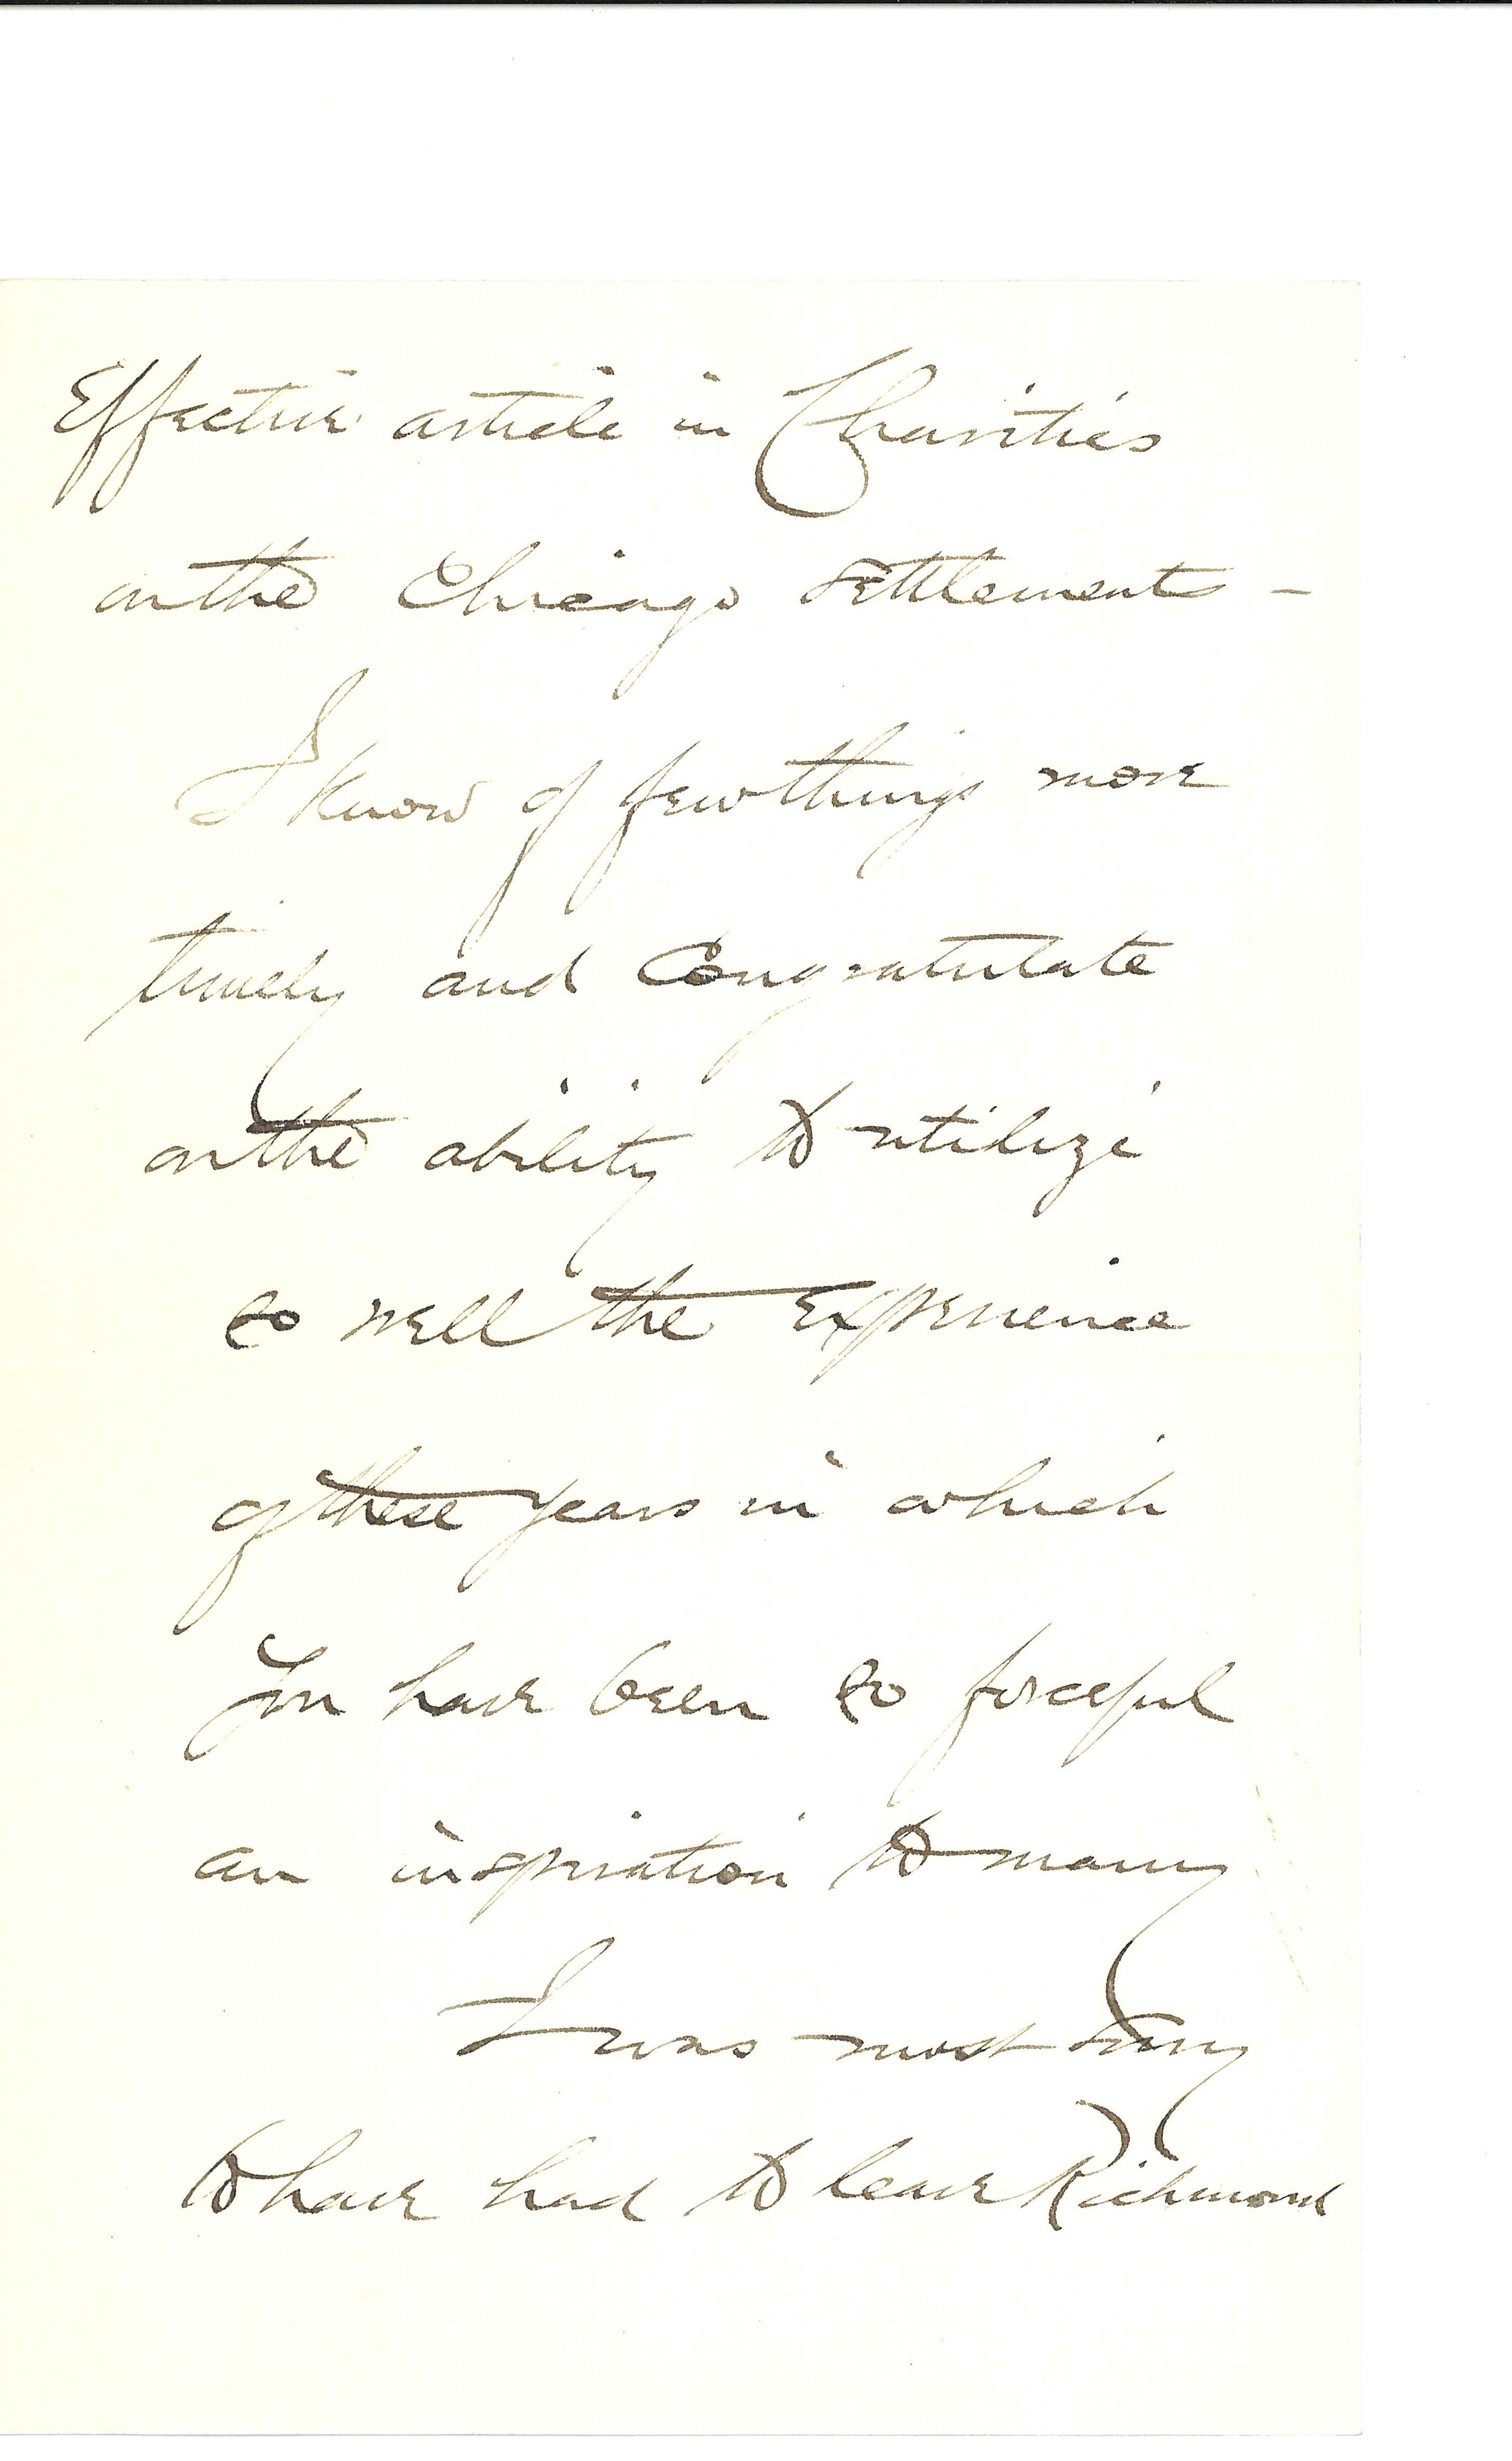 Effective article in Charities
on the Chicago Settlements -
I know of few things more
timely and Congratulate
on the ability to utilize
so well the Experience
of these years in which
you have been so forceful
an inspiration to many
I was most sorry
to have had to leave Richmond